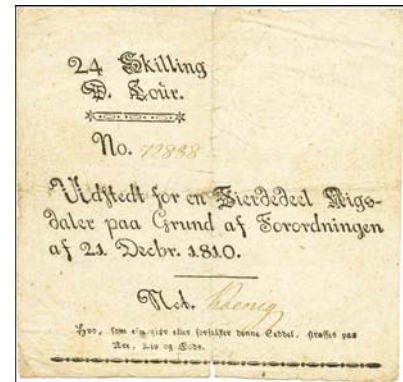 24 Skilling
D. Cour.
No. 72838
Udstedt for en Fierdedeel Rigs-
daler paa Grund af Forordningen
af 21. Decbr. 1810.
Not. Koenig
Hvo, som eftergiør eller forfalsker denne Seddel, straffes paa
Ære, Liv og Gods.